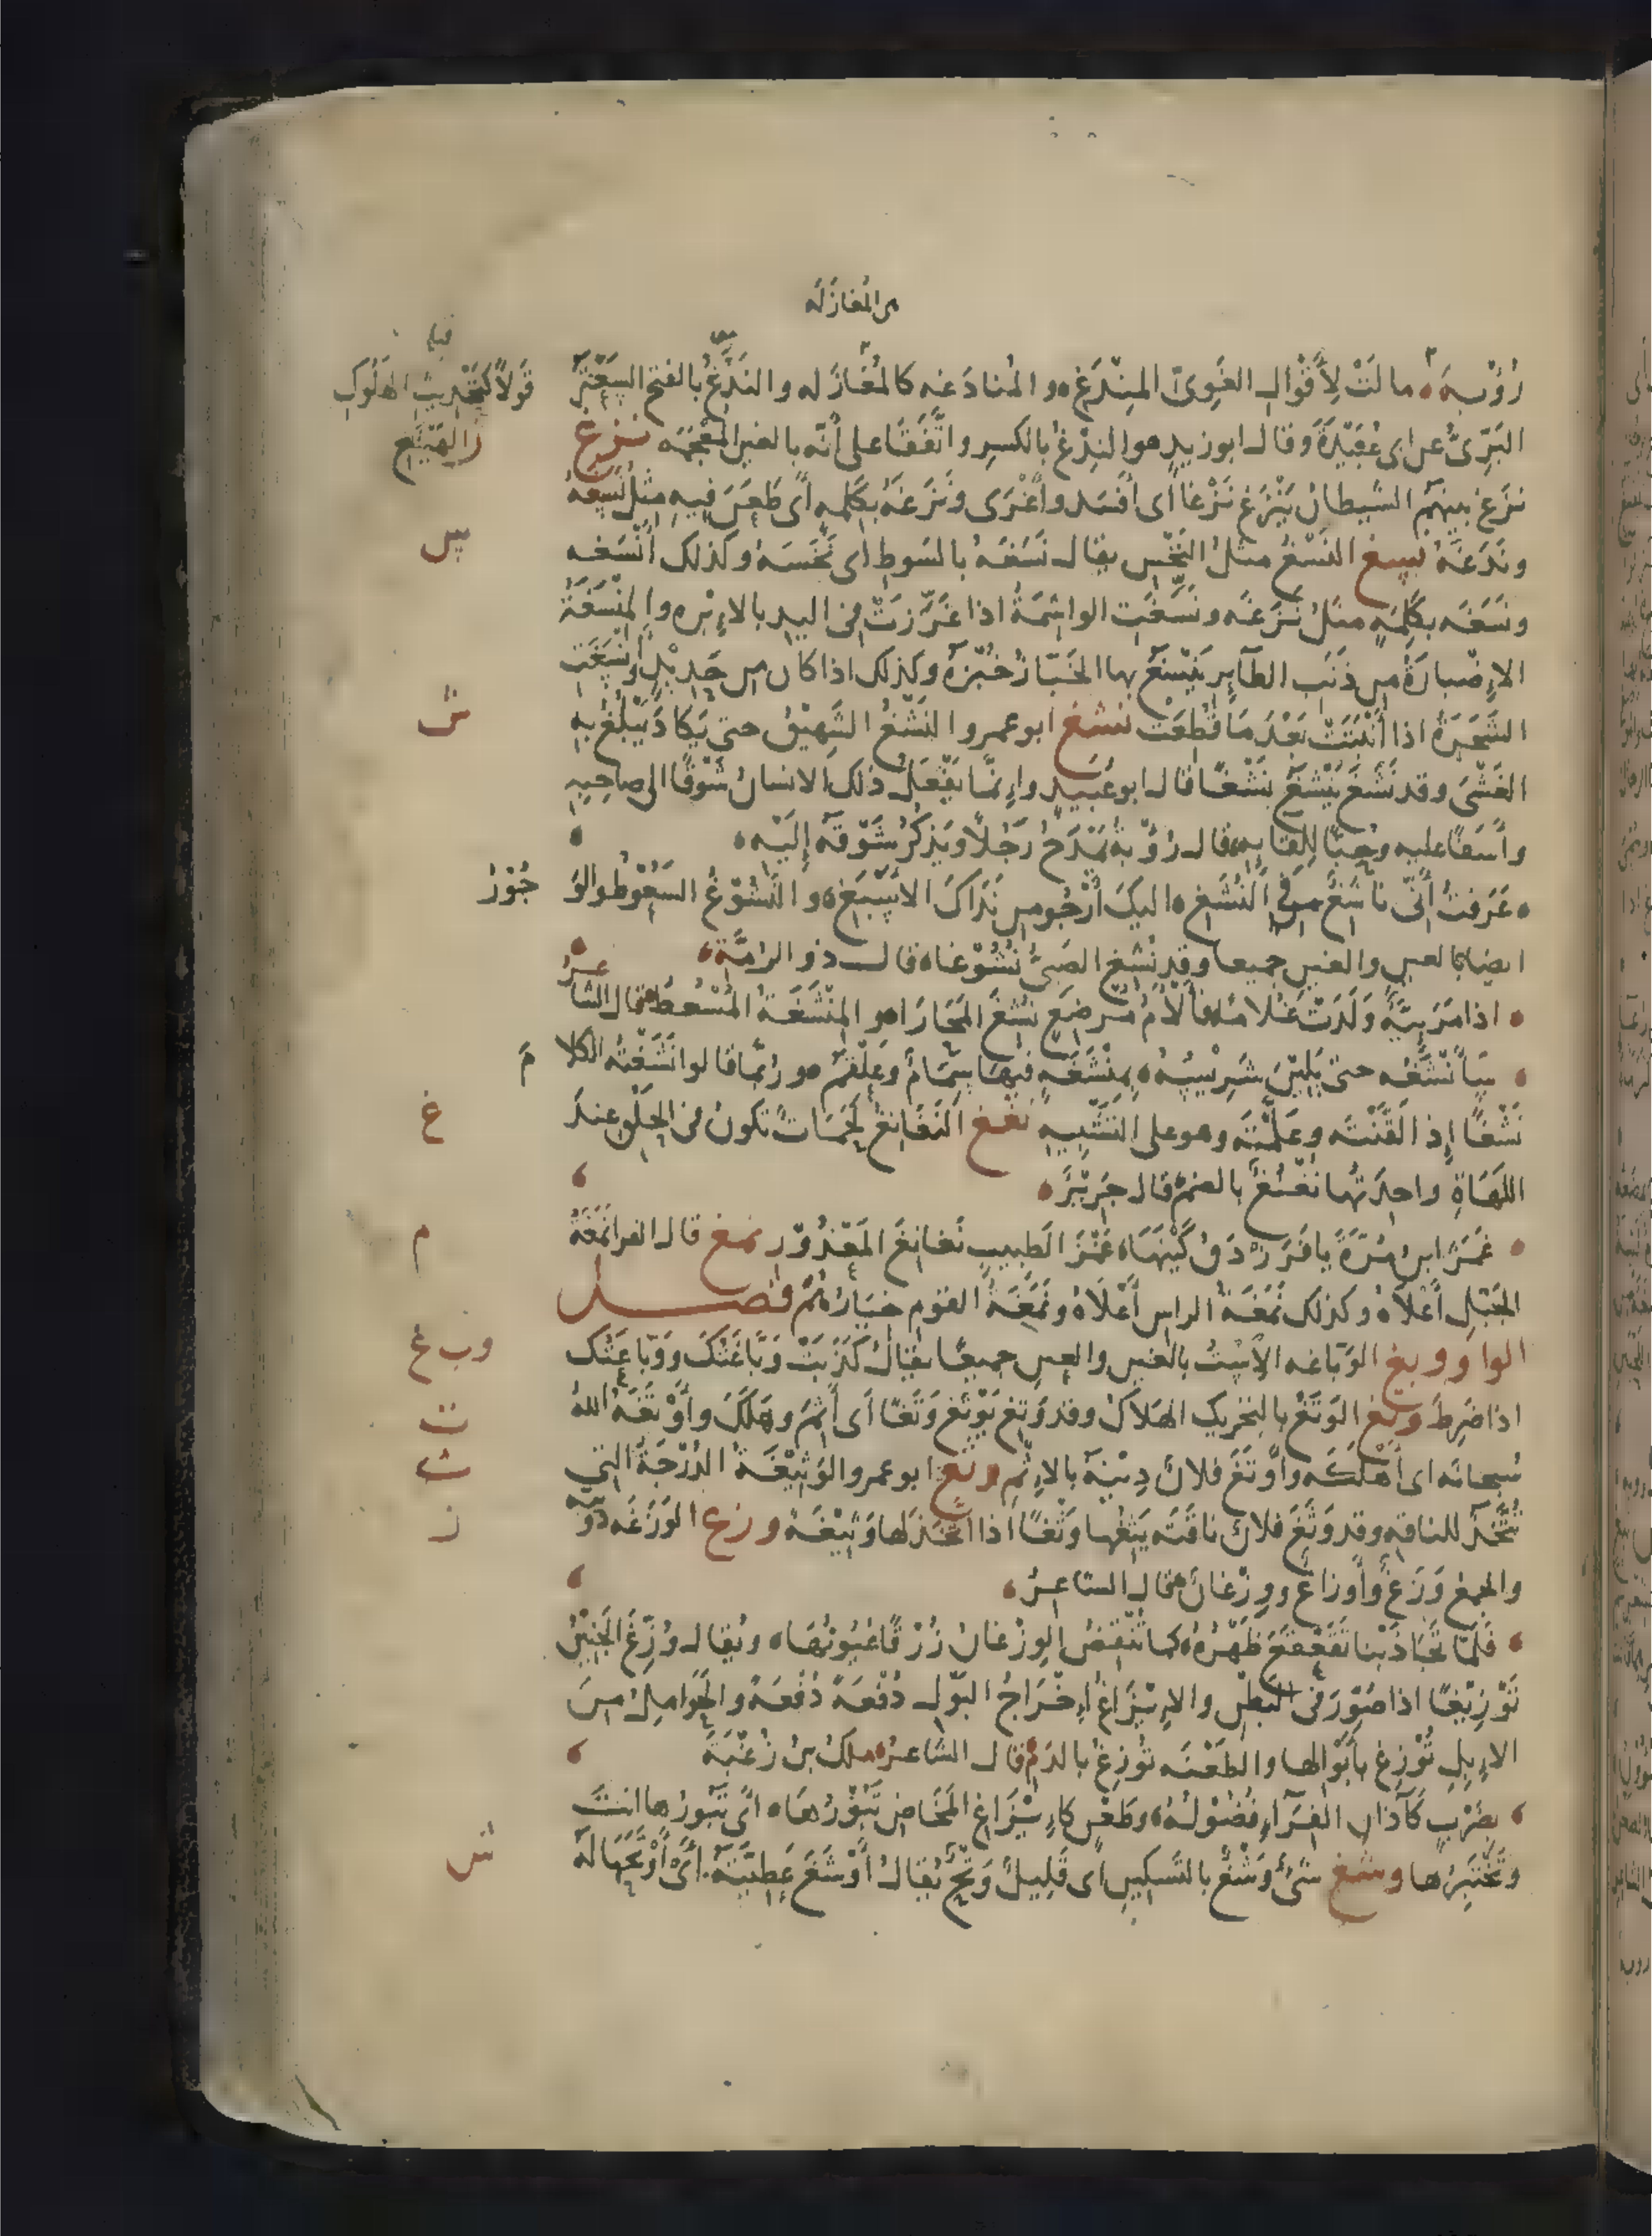 من المغازلة
قبله
قَولاً كتحديث الهَلُوكِ
الهَيْنَغِ
رُؤْبة مالَتْ لِأَقْوالِ الغَوِىِّ المِنْدَغِ والمُنادَغه كالمُغازَله والنَدْغُ بالفتح السَعْتَرُ
البَرِّىُّ عن ابى عُبَيْدَةَ وقال ابو زيدٍ هو النِدْغُ بالكسرِ واتَّفَقَا على أنّه بالغين المُعْجَمَه نزغ
نزَغ بينهم الشيطانُ يَنْزَغ نَزْغا اى أفسَد وأَغْرَى ونَزَغَهُ بكَلِمه أى طَعَنَ فيهِ مِثْلُ نَسَغهُ
ونَدَغَهُ نسغ النَسْغُ مثلُ النَخْسِ يقال نَسَغَهُ بالسَوطِ اى نَخَسَهُ وكذلك أَنْسَغه
س
ونَسَغَه بكَلِمَةٍ مثلُ نَزَغَه ونَسَّغَتِ الواشِمَةُ اذا غَرَّزَتْ فى اليدِ بالاِبْرهِ والمِنْسَغَةُ
الاِضْبارَةُ من ذَنَبِ الطَّاير يَنْسَغُ بها الخَبّازُ خُبْزَهُ وكذلك اذا كان من حَدِيْدٍ أَنْسَغَتِ
الشَجَرَةُ اذا أَنْبَتَتْ بَعْدَ مَا قُطِعَتْ نشغ ابو عمرو النَشْغُ الشَهِيْقُ حتى يَكادَ يَبْلُغُ به
ش
الغَشْىَ وقد نَشَغَ يَنْشَغُ نَشْغًا قال ابو عُبَيدٍ وإنّما يَفْعَلُ ذلك الانسانُ شَوْقًا الى صاحِبِهِ
وأَسَفًا عليه وحُبًّا لِلِقَايِهِ قال رُؤْبةُ يَمْدَحُ رَجُلاً ويَذكُرُ شَوْقَهُ إِلَيْهِ
عَرَفتُ أَنّى ناشِغٌ فى النُشَّغِ اليكَ أَرْجُو من نَدَاكَ الاَسْبَغِ والنَشُوْغُ السَعُوْطُ والوَ
جُوْرُ
ايضا بالعين والغين جميعا وقد نُشِغ الصَبِىُّ نَشُوْغا قال ذو الرُمَّةِ
اذا مَرَييَّةٌ وَلَدَتْ غُلاما فأَلأَمُ مُرْضَعٍ نُشِغَ المَحَارَا والمِنْشَغَةُ المُسْعُطُ قال الشاعرُ
سَأَنْشَغُه حتى يَلِيْنَ شَرِيْسُهُ بمِنْشَغَهٍ فيها سِمَامٌ وعَلْقَمُ ورُبّما قالوا نَشَغْتُه الكلامَ
نَشْغًا إذ الَقَّنْتَه وعَلَّمْتَه وهو على التَشْبِيهِ نغغ النَغانِغُ لَحَمَاتٌ تكونُ فى الحَلْقِ عندَ
غ
اللَهَاةِ واحِدَتُها نُغْنُغٌ بالضم قال جَرِيْرٌ
غَمَزَ ابنُ مُرَّةَ يا فَرَزْدَقُ كَيْنَهَا غَمْزَ الطبيبِ نَغانِغَ المَعْذُوْرِ نمغ قال الفرا نَمَغَةُ
م
الجَبَلِ أَعْلاَهُ وكذلك نَمَغَةُ الراس أَعْلاَهُ ونَمَغَةُ القومِ خيَارُهُمْ فصل
الواو وبغ الوَبّاغه الاِسْتُ بالغين والعين جميعًا يقال كَذَبَتْ وَبَّاغَتُكَ ووَبّاعَتُك
وب غ
اذا ضَرِطَ وتغ الوَتَغُ بالتحريك الهَلاَكُ وقد وَتِغ يَوْتَغ وَتَغًا اى أَثِمَ وهَلَكَ وأَوْتَغَهُ اللهُ
ت
سبحانَه اى أَهْلَكَه وأَوْتَغَ فلانٌ دِيْنَهُ بالاِثْمِ وثغ ابو عمرو الوَثِيْغَةُ الدُرْجَةُ التى
ث
تُتَّخَذُ للناقهِ وقد وَثَغَ فلانٌ ناقَتَه يَثِغُها وَثْغًا اذا اتَّخَذَ لها وَثِيْغَةً وزغ الوَزَغَه دُوَيْبَّة
ز
والجمعُ وَزَغٌ وأَوزاغٌ ووِزْغانٌ قال الشاعرُ
فَلَمّا تَجَاذَبْنا تَفَرْقَعَ ظَهْرُهُ كما تُنْقِضُ الوِزْغانُ زُرْقًا عُيُونُهَا ويُقال وُزِّغَ الجَنِيْنُ
تَوْزِيْغًا اذا صُوِّرَ فى البَطْنِ والاِيْزَاغُ إخْرَاجُ البَوْلِ دُفْعَةً دُفْعَةً والحَوامِلُ مِنَ
الاِبِلِ تُوْزِغُ بأَبْوالِها والطَعْنَه تُوزِغُ بالدَمِ قال الشاعرُ ملكُ بنُ زُغْبَةَ
بضَرْبٍ كآذانِ الفِرَآءِ فُضُوْلُهُ وطَعْنٍ كاِيْزَاغِ المَخَاضِ تَبُوْرُها اى تَبُورُها انتَ
وتَخْتَبِرُها وشغ شَىْءٌ وَشْغٌ بالتسكينِ اى قَلِيلٌ وَتْحٌ يُقالُ أَوْشَغَ عَطِيَّتَهُ أَىْ أَوْتَحَهَا قَالَ
ش